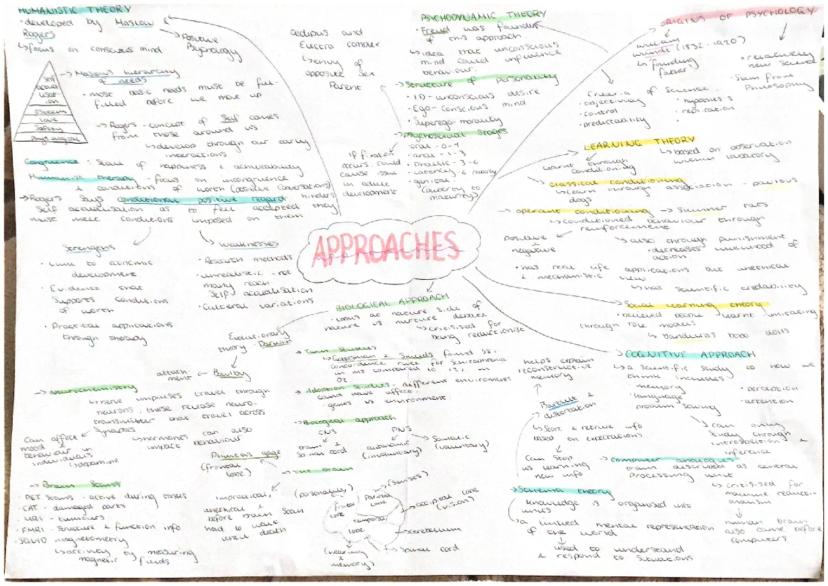 HUMANISTIC THEORY
• developed by Maslow &
Rogers
→ focus on conscious mind
→ Positive
Psychology
→ Maslow's hierarchy
of needs
• most basic needs must be ful-
filled before we move up
→ Rogers - concept of self comes
from those around us
→ develop through our early
interactions
Congruence - sense of happiness & achievability
Humanistic therapy - focus on incongruence
& conditions of worth
→ Rogers says conditional positive regard hinders
self actualisation as to feel accepted they
must meet conditions imposed on them
Strengths
• links to economic
development
• Evidence that
supports conditions
of worth
• Practical applications
through therapy
Weaknesses
• Research methods
• unrealistic - not
many reach
self actualisation
• Cultural variations
oedipus and
Electra complex
↳ envy of
opposite sex
Parent
PSYCHODYNAMIC THEORY
• Freud was founder
of this approach
→ idea that unconscious
mind could influence
behaviour
→ Structure of Personality
• ID - unconscious desire
• Ego - conscious mind
• Superego - morality
→ Psychosexual Stages
• oral - 0-1
• anal - 1-3
• phallic - 3-6
• genital
(puberty to
maturity)
if fixation
occurs could
cause issues
in adult
development
ORIGINS OF PSYCHOLOGY
wilhelm
wundt (1832-1920)
↳ founding
father
• relatively
new science
• Stem from
Philosophy
Criteria of science
• objectivity
• control
• predictability
• hypothesis
• replication
LEARNING THEORY
learnt through
conditioning
→ based on observation
within laboratory
→ classical conditioning
→ learn through association - pavlovs
dogs
→ operant conditioning → Skinner rats
↳ conditioned behaviour through
reinforcement
Positive
negative
↳ also through punishment
- decreases likelihood of
action
• has real life applications but unethical
& mechanistic view
↳ has scientific credibility
→ Social learning theory
→ believed people learnt imitating
through role models
↳ Bandura's bobo dolls
APPROACHES
BIOLOGICAL APPROACH
• looks at nature side of
nature vs nurture debate
↳ criticised for
being reductionist
Evolutionary
theory - Darwin
attach-
ment - Bowlby
→ Twin Studies
→ Gottesman & Shields found 58%
concordance rates for Schizophrenia
in MZ compared to 12% in
DZ
→ Adoption studies - different environment
same genes
genes vs environment
→ Biological approach
CNS
PNS
brain &
Spinal cord
autonomic
(involuntary)
→ Somatic
(voluntary)
→ neurochemistry
→ nerve impulses travel through
neurons, these release neuro-
transmitters that travel across
Synapses
→ hormones can also
impact behaviour
Can affect
mood &
behaviour in
individuals
↳ dopamine
→ Brain Scans
• PET Scans - active during tasks
• CAT - damaged parts
• MRI - tumours
• FMRI - structure & function info
• SQUID magnetometry
↳ accuracy by measuring
magnetic fields
Phineas gage
(frontal
lobe)
→ The brain
impractical,
unethical &
before brain scan
had to wait
until death
(personality)
(senses)
→ occipital lobe
(vision)
→ cerebellum
→ Spinal cord
(hearing &
memory)
COGNITIVE APPROACH
→ a Scientific study to how we
think includes
• memory
• language
• problem solving
• perception
• attention
→ can only
study through
introspection &
inference
helps explain
reconstructive
memory
Bartlett &
distortion
→ Store & retrieve info
based on expectations
Can stop
us learning
new info
→ Computer analogies
brain described as central
processing unit
→ criticised for
machine reduct-
ionism
human brain
also came before
computers
→ Schema theory
→ knowledge is organised into
units
→ a linked mental representation
of the world
→ used to understand
& respond to situations